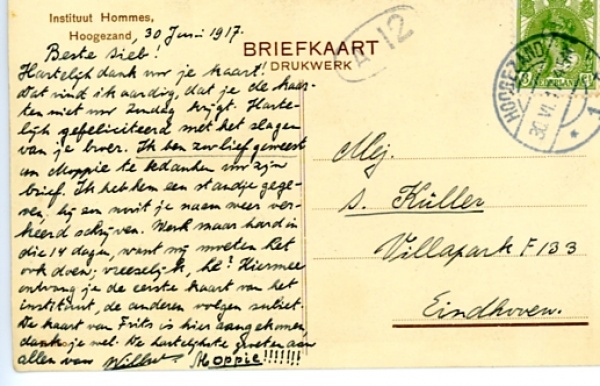 Instituut Hommes,
Hoogezand, 30 Juni 1917.
Beste Sieb!
Hartelijk dank vr je kaart!
Dat vind ik aardig, dat je de kaar-
ten niet vr Zondag krijgt. Harte-
lijk gefeliciteerd met het slagen
van je broer. Ik ben zoo lief geweest
om Moppie te bedanken vr zijn
brief. Ik heb hem een standje gege-
ven, hij zou nooit je naam meer ver-
keerd schrijven. Werk maar hard in
die 14 dagen, want wij moeten het
ook doen; vreeselijk, hè? Hiermee
ontvang je de eerste kaart van het
instituut, de anderen volgen subiet.
De kaart van Frits is hier aangekomen,
dank je wel. De hartelijkste groeten aan
allen van Moppie!!!!!!!
BRIEFKAART
DRUKWERK
A 12
HOOGEZAND
30 VI
1
Mej.
S. Küller
Villapark F 133
Eindhoven.